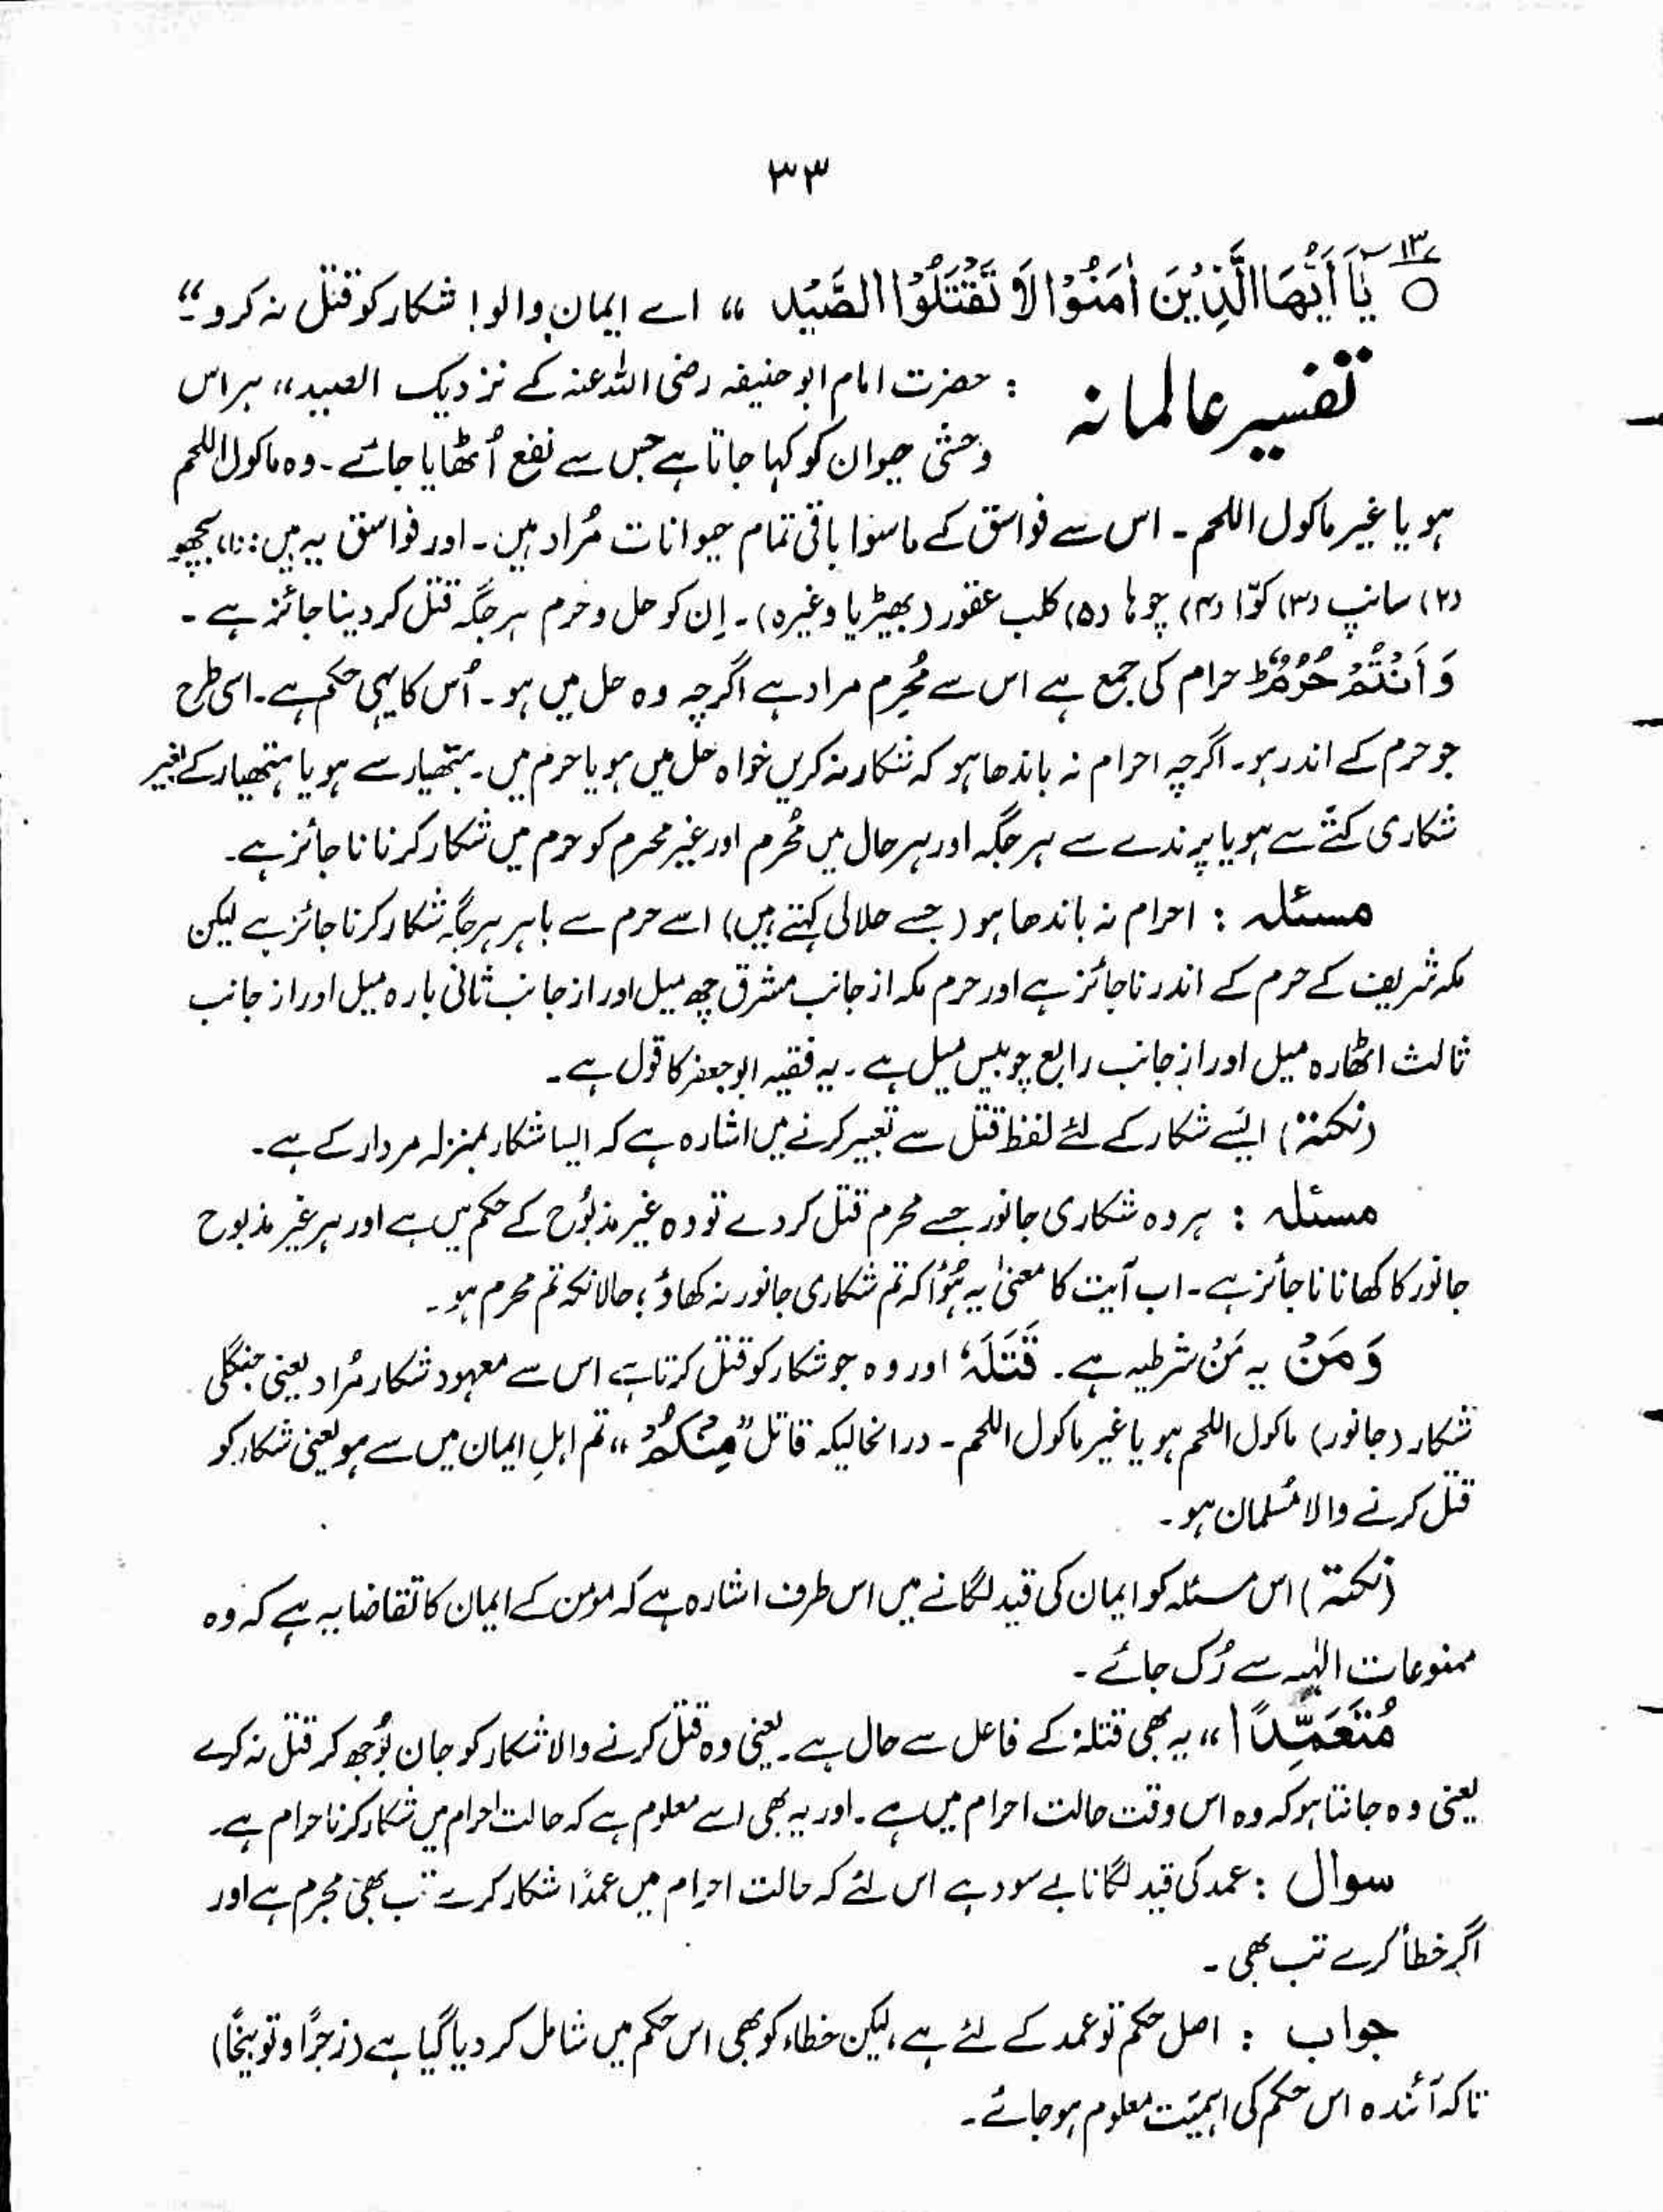 ۳۳
۱۳ع
○ یٰٓاَ اَیُّھَا الَّذِیْنَ اٰمَنُوْا لَا تَقْتُلُوْا الصَّیْد ،، اے ایمان والو! شکار کو قتل نہ کرو"
تفسیر عالمانہ : حضرت امام ابو حنیفہ رضی اللہ عنہ کے نزدیک الصید،، ہر اس
وحشی حیوان کو کہا جاتا ہے جس سے نفع اُٹھایا جائے۔ وہ ماکول اللحم
ہو یا غیر ماکول اللحم۔ اس سے فواسق کے ماسوا باقی تمام حیوانات مُراد ہیں۔ اور فواسق یہ ہیں: (۱) بچھو
(۲) سانپ (۳) کوّا (۴) چوہا (۵) کلب عقور (بھیڑیا وغیرہ)۔ اِن کو حل و حرم ہر جگہ قتل کر دینا جائز ہے۔
وَ اَنْتُمْ حُرُمٌ ط حرام کی جمع ہے اس سے مُحرِم مراد ہے اگرچہ وہ حل میں ہو۔ اُس کا یہی حکم ہے۔ اسی طرح
جو حرم کے اندر ہو۔ اگرچہ احرام نہ باندھا ہو کہ شکار نہ کریں خواہ حل میں ہو یا حرم میں۔ ہتھیار سے ہو یا ہتھیار کے بغیر
شکاری کتّے سے ہو یا پرندے سے ہر جگہ اور ہر حال میں مُحرم اور غیر محرم کو حرم میں شکار کرنا ناجائز ہے۔
مسئلہ : احرام نہ باندھا ہو (جسے حلالی کہتے ہیں) اسے حرم سے باہر ہر جگہ شکار کرنا جائز ہے لیکن
مکہ شریف کے حرم کے اندر ناجائز ہے اور حرم مکہ از جانب مشرق چھ میل اور از جانب ثانی بارہ میل اور از جانب
ثالث اٹھارہ میل اور از جانب رابع چوبیس میل ہے۔ یہ فقیہ ابو جعفر کا قول ہے۔
(نکتہ) ایسے شکار کے لئے لفظ قتل سے تعبیر کرنے میں اشارہ ہے کہ ایسا شکار بمنزلہ مردار کے ہے۔
مسئلہ : ہر وہ شکاری جانور جسے محرم قتل کر دے تو وہ غیر مذبُوح کے حکم میں ہے اور ہر غیر مذبوح
جانور کا کھانا ناجائز ہے۔ اب آیت کا معنیٰ یہ ہُوا کہ تم شکاری جانور نہ کھاؤ؛ حالانکہ تم محرم ہو۔
وَ مَنْ یہ مَنْ شرطیہ ہے۔ قَتَلَہٗ اور وہ جو شکار کو قتل کرتا ہے اس سے معہود شکار مُراد یعنی جنگلی
شکار (جانور) ماکول اللحم ہو یا غیر ماکول اللحم۔ درانحالیکہ قاتل "مِنْکُمْ،، تم اہلِ ایمان میں سے ہو یعنی شکار کو
قتل کرنے والا مُسلمان ہو۔
(نکتہ) اس مسئلہ کو ایمان کی قید لگانے میں اس طرف اشارہ ہے کہ مومن کے ایمان کا تقاضا یہ ہے کہ وہ
ممنوعات الٰہیہ سے رُک جائے۔
مُتَعَمِّدًا ،، یہ بھی قتلہٗ کے فاعل سے حال ہے۔ یعنی وہ قتل کرنے والا شکار کو جان بُوجھ کر قتل نہ کرے
یعنی وہ جانتا ہو کہ وہ اس وقت حالت احرام میں ہے۔ اور یہ بھی اسے معلوم ہے کہ حالت احرام میں شکار کرنا حرام ہے۔
سوال : عمد کی قید لگانا بے سود ہے اس لئے کہ حالت احرام میں عمدًا شکار کرے تب بھی مجرم ہے اور
اگر خطأ کرے تب بھی۔
جواب : اصل حکم تو عمد کے لئے ہے، لیکن خطاء کو بھی اس حکم میں شامل کر دیا گیا ہے (زجرًا و توبیخًا)
تاکہ آئندہ اس حکم کی اہمیّت معلوم ہو جائے۔